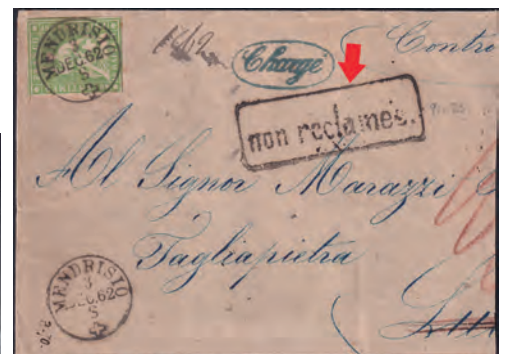 MENDRISIO
3
DEC.62
S
1862
Chargé
Contro
non reclames.
Al Signor Marazzi
Tagliapietra
MENDRISIO
3
DEC.62
S